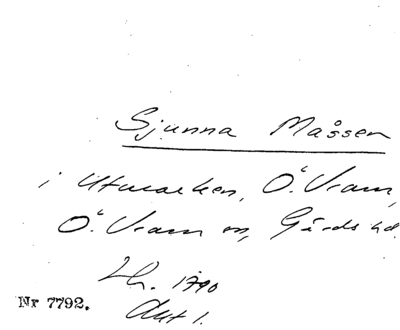 Sjunna Måssen
i Utmarken, Ö. Vram,
Ö. Vram sn, Gärds hd.
1790
Nr 7792.
Akt 1.